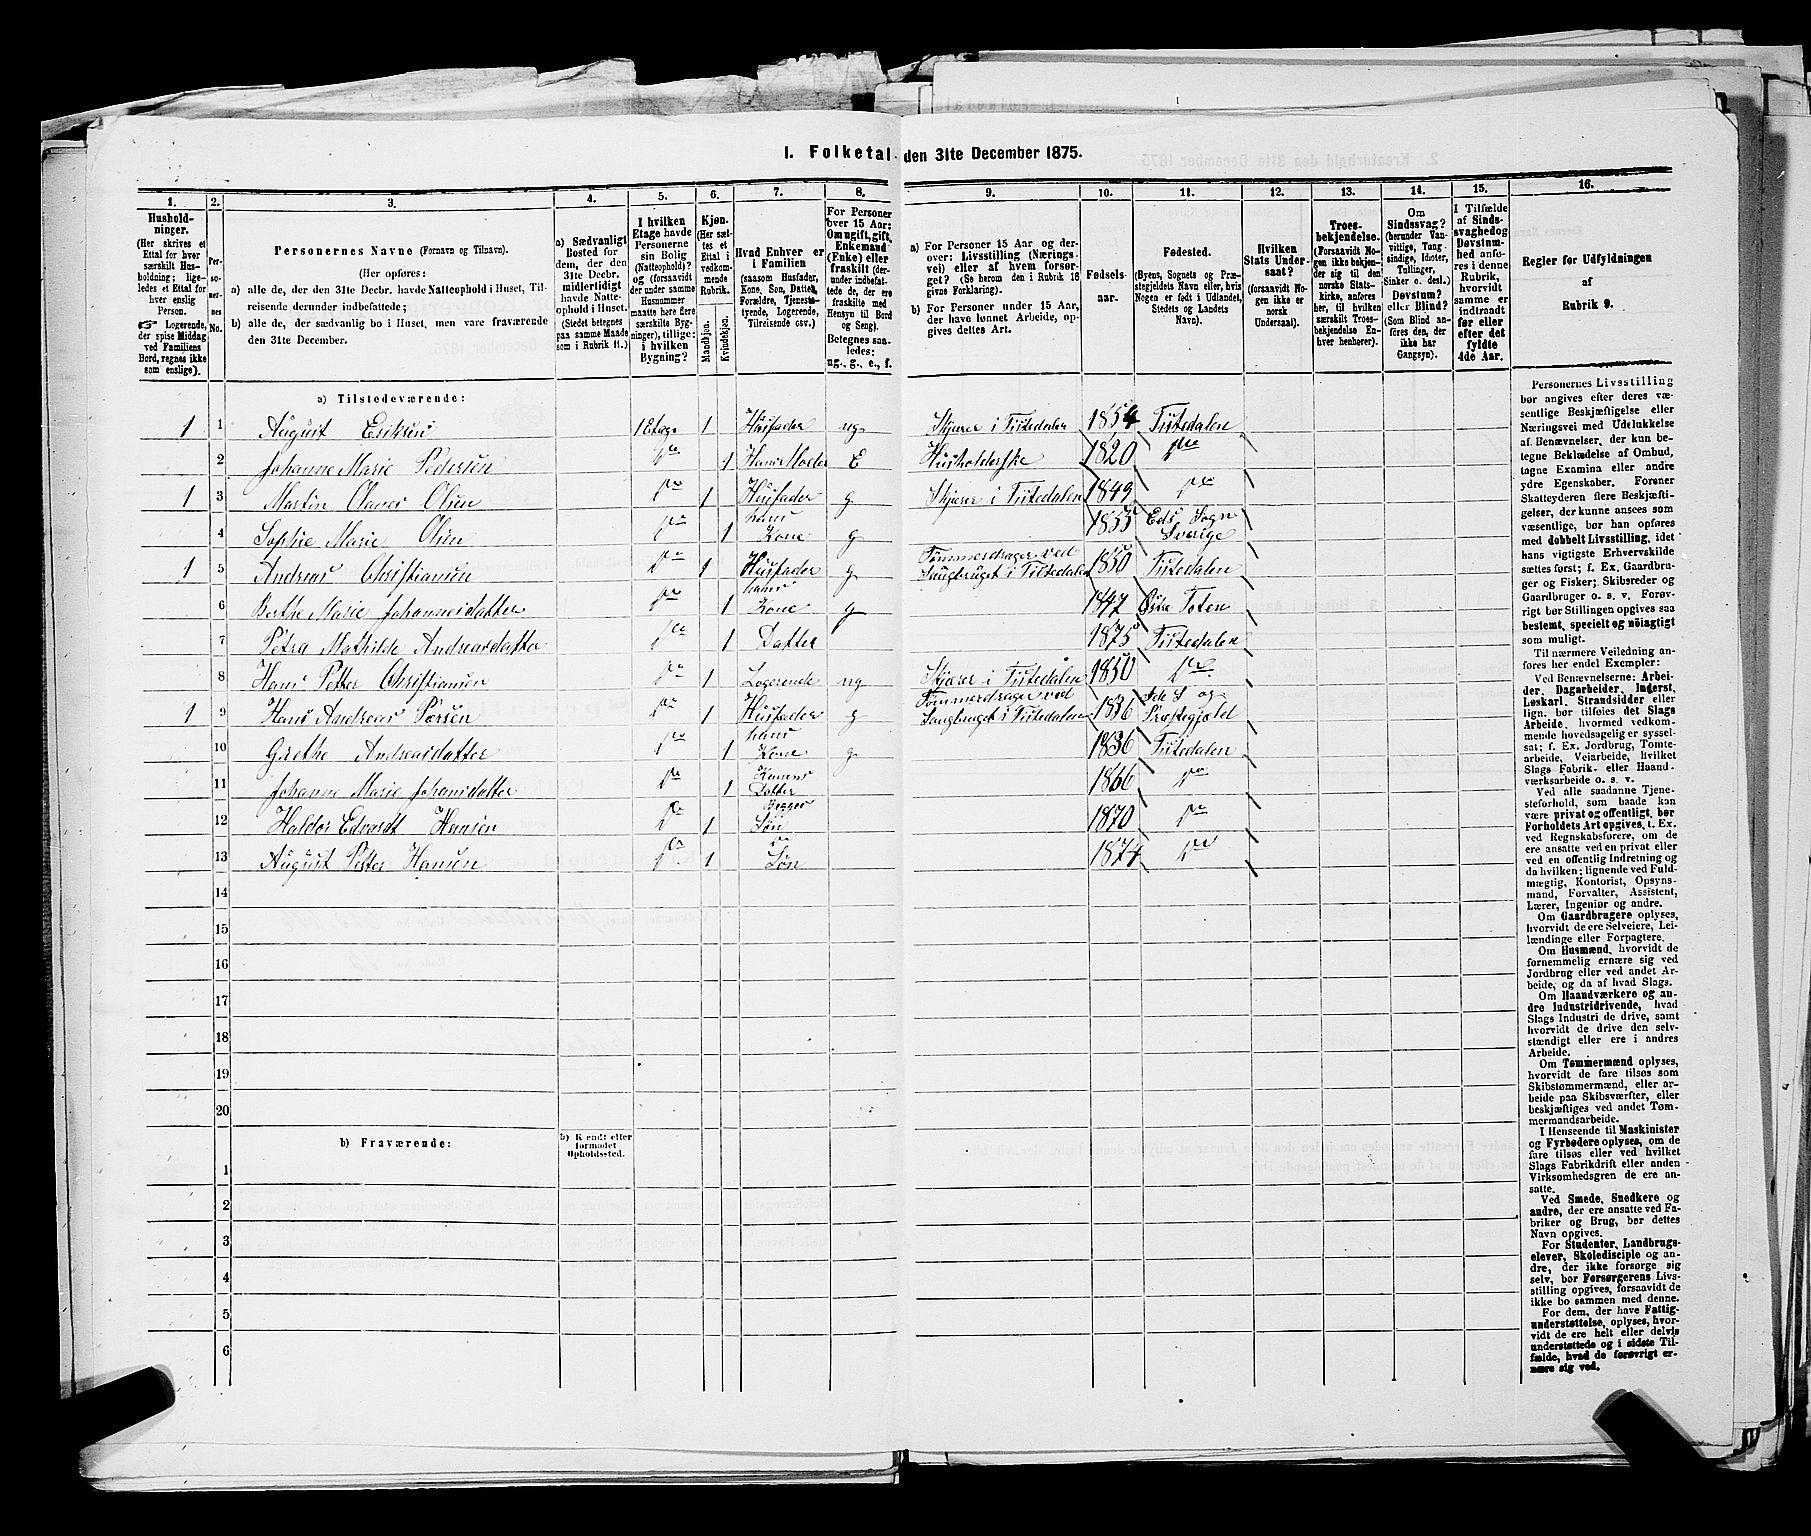 I. Folketal den 31te December 1875.
1. 2. 3. 4. 5. 6. 7. 8. 9. 10. 11. 12. 13. 14. 15. 16.
Husholdninger. (Her skrives et Ettal for hver særskilt Husholdning; ligeledes et Ettal for hver enslig Person. ☞ Logerende, der spise Middag ved Familiens Bord, regnes ikke som enslige).
Personernes No.
Personernes Navne (Fornavn og Tilnavn).
(Her opføres:
a) alle de, der den 31te Decbr. havde Natteophold i Huset, Tilreisende derunder indbefattede;
b) alle de, der sædvanlig bo i Huset, men vare fraværende den 31te December.
a) Sædvanligt Bosted for dem, der den 31te Decbr. midlertidigt havde Natteophold i Huset. (Stedet betegnes paa samme Maade som i Rubrik 11.)
I hvilken Etage havde Personerne sin Bolig (Natteophold)? (forsaavidt der under samme Husnummer maatte høre flere særskilte Bygninger), tillige: i hvilken Bygning?
Kjøn. (Her sættes et Ettal i vedkommende Rubrik. Mandkjøn. Kvindekjøn.
Hvad Enhver er i Familien (saasom Husfader, Kone, Søn, Datter, Forældre, Tjenestetyende, Logerende, Tilreisende osv.)
For Personer over 15 Aar: Om ugift, gift, Enkemand (Enke) eller fraskilt (derunder indbefattede de, der ere fraskilte med Hensyn til Bord og Seng). Betegnes saaledes: ug., g., e., f.
a) For Personer 15 Aar og derover: Livsstilling (Næringsvei) eller af hvem forsørget? (Se herom den i Rubrik 16 givne Forklaring).
b) For Personer under 15 Aar, der have lønnet Arbeide, opgives dettes Art.
Fødselsaar.
Fødested. (Byens, Sognets og Præstegjeldets Navn eller, hvis Nogen er født i Udlandet, Stedets og Landets Navn).
Hvilken Stats Undersaat? (forsaavidt Nogen ikke er norsk Undersaat).
Troesbekjendelse. (Forsaavidt Nogen ikke bekjender sig til den norske Statskirke, anføres her, til hvilken særskilt Troesbekjendelse Enhver henhører).
Om Sindssvag? (herunder Vanvittige, Tungsindige, Idioter, Tullinger, Sinker o. desl.) Døvstum? eller Blind? (Som Blind anføres den, der ikke har Gangsyn).
I Tilfælde af Sindssvaghed og Døvstumhed anføres i denne Rubrik, hvorvidt samme er indtraadt før eller efter det fyldte 4de Aar.
Regler for Udfyldningen af Rubrik 9.
a) Tilstedeværende:
1 1 August Eriksen 1 Etage 1 Husfader ug Skjærer i Tistedalen 1854 Tistedalen
2 Johanne Marie Pedersen do 1 Hans Moder E Husholderske 1820 do
1 3 Martin Olaves Olsen do 1 Husfader g Skjærer i Tistedalen 1849 do
4 Sophie Marie Olsen do 1 hans Kone g 1855 Eds Sogn Sverige
1 5 Andreas Christiansen do 1 Husfader g Tømmerdrager ved Saugbruget i Tistedalen 1850 Tistedalen
6 Berthe Marie Johannesdatter do 1 hans Kone g 1847 Østre Toten
7 Petra Mathilde Andreasdatter do 1 Datter 1875 Tistedalen
8 Hans Petter Christiansen do 1 Logerende ug Skjærer i Tistedalen 1850 do
1 9 Hans Andreas Persen do 1 Husfader g Tømmerdrager ved Saugbruget i Tistedalen 1836 Ide S og Præstegjæld
10 Grethe Andreasdatter do 1 hans Kone g 1836 Tistedalen
11 Johanne Marie Johansdatter do 1 Konens Datter 1866 do
12 Haldor Edvardt Hansen do 1 Begges Søn 1870 do
13 August Petter Hansen do 1 do Søn 1874 do
14
15
16
17
18
19
20
b) Fraværende:
b) Kjendt eller formodet Opholdssted.
1
2
3
4
5
6
Personernes Livsstilling
bør angives efter deres væ-
sentlige Beskjæftigelse eller
Næringsvei med Udelukkelse
af Benævnelser, der kun be-
tegne Beklædelse af Ombud,
tagne Examina eller andre
ydre Egenskaber. Forener
Skatteyderen flere Beskjæfti-
gelser, der kunne ansees som
væsentlige, bør han opføres
med dobbelt Livsstilling, idet
hans vigtigste Erhvervskilde
sættes først; f. Ex. Gaardbru-
ger og Fisker; Skibsreder og
Gaardbruger o. s. v. Forøv-
rigt bør Stillingen opgives saa
bestemt, specielt og nöiagtigt
som muligt.
Til nærmere Veiledning an-
føres her endel Exempler:
Ved Benævnelserne: Arbei-
der, Dagarbeider, Inderst,
Løskarl, Strandsidder eller
lign. bør tilføies det Slags
Arbeide, hvormed vedkom-
mende hovedsagelig er syssel-
sat; f. Ex. Jordbrug, Tomte-
arbeide, Veiarbeide, hvilket
Slags Fabrik- eller Haand-
værksarbeide o. s. v.
Ved alle saadanne Tjene-
steforhold, som baade kan
være privat og offentligt, bør
Forholdets Art opgives, t. Ex.
ved Regnskabsførere, om de
ere ansatte ved en privat eller
ved en offentlig Indretning og
da hvilken; lignende ved Fuld-
mægtig, Kontorist, Opsyns-
mand, Forvalter, Assistent,
Lærer, Ingeniør og andre.
Om Gaardbrugere oplyses,
hvorvidt de ere Selveiere, Lei-
lændinge eller Forpagtere.
Om Husmænd, hvorvidt de
fornemmelig ernære sig ved
Jordbrug eller ved andet Ar-
beide, og da af hvad Slags.
Om Haandværkere og an-
dre Industridrivende, hvad
Slags Industri de drive, samt
hvorvidt de drive den selv-
stændigt eller ere i andres
Arbeide.
Om Tømmermænd oplyses,
hvorvidt de fare tilsøs som
Skibstømmermænd, eller ar-
beide paa Skibsværfter, eller
beskjæftiges ved andet Tøm-
mermandsarbeide.
I Henseende til Maskinister
og Fyrbødere oplyses, om de
fare tilsøs eller ved hvilket
Slags Fabrikdrift eller anden
Virksomhedsgren de ere an-
satte.
Ved Smede, Snedkere og
andre, der ere ansatte ved Fa-
briker og Brug, bør dettes
Navn opgives.
For Studenter, Landbrugs-
elever, Skoledisciple og an-
dre, der ikke forsørge sig
selv, bør Forsørgerens Livs-
stilling opgives, forsaavidt de
ikke bo sammen med denne.
For dem, der have Fattig-
understøttelse, oplyses, hvor-
vidt de ere helt eller delvis
understøttede og i sidste Til-
fælde, hvad de forøvrigt er-
nære sig ved.